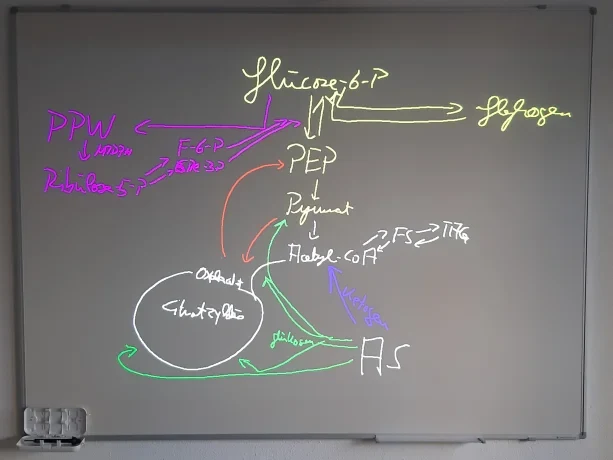 Glucose-6-P
PPW
Glykogen
NADPH
F-6-P
Ribulose-5-P
PEP
Pyruvat
Acetyl-CoA
FS
TAG
Oxalacetat
Citratzyklus
ketogen
glukogen
AS